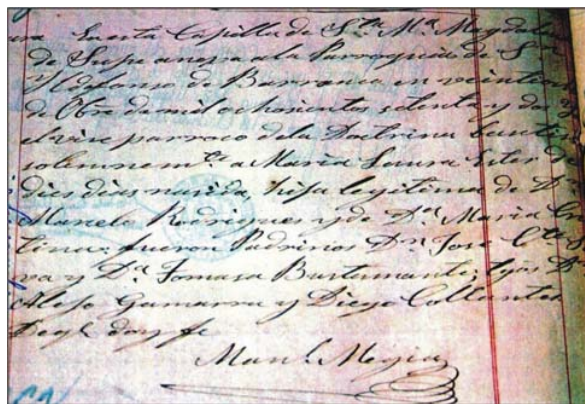 En esta Capilla de Sta Ma Magdalena
de Supe anexa a la Parroquia de Sn
Yldefonso de Barranca en veintico
de Obre de mil ochosientos setenta y dos
el vice parroco de la Doctrina bauti
solemnemte a Maria Laura Ester de
dies dias nasida, hija legitima de Dn
Marcelo Rodriguez y de Da Maria Cris
tina: fueron Padrinos Dn Jose
va y Da Tomasa Bustamante; tgos Dn
Alejo Gamarra y Diego Collantes
De q. doy fe
Manl Megia